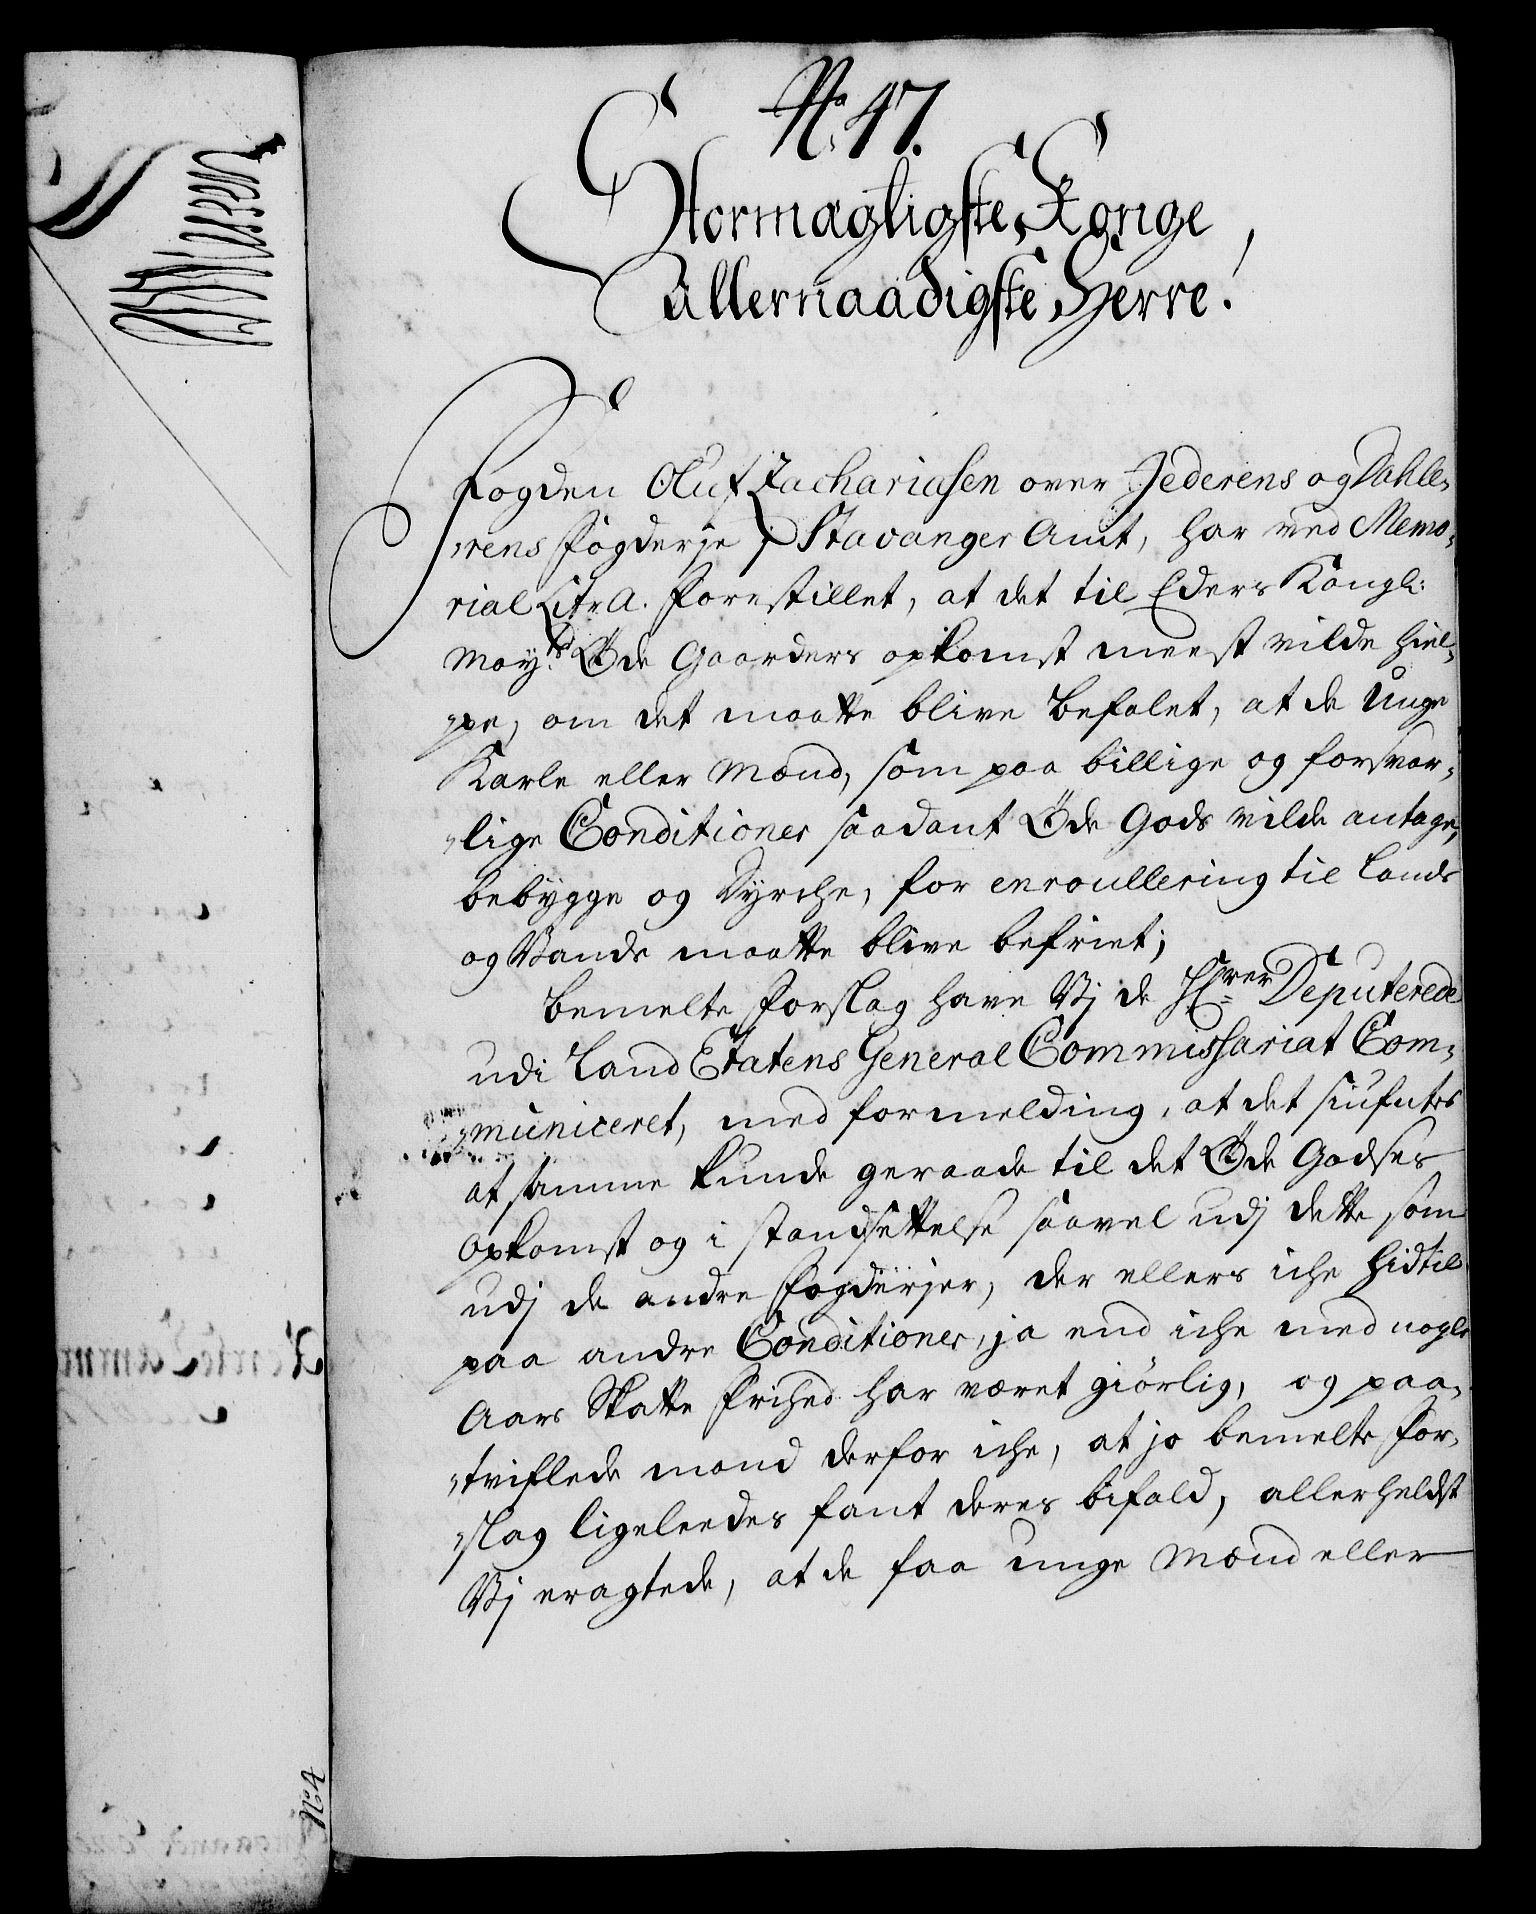 No. 47.
Stormægtigste Konge,
Allernaadigste Herre!
Fogden Oluf Zachariasen over Jederens og Dahle,,
,,rens Fogderje i Stavanger Amt, har ved Memo,,
rial Litr A. forestillet, at det til Eders Kongl:
May:ts Øde Gaarders opkomst meest vilde hiel,,
,,pe, om det maatte blive befalet, at de Unge
Karle eller Mænd, som paa billige og forsvar,,
,,lige Conditioner saadant Øde Gods vilde antage,
bebygge og dyrche, for enroullering til Lands
og Vands maatte blive befriet;
Bemelte Forslag have Vj de Hrrer Deputerede
udi Land Etatens General Commissariat Com,,
,,municeret, med formelding, at det siufntes
at samme kunde geraade til det Øde Godses
Opkomst og i standsettelse saavel udj dette som
udj de andre Fogderjer, der ellers iche hidtil
paa andre Conditioner, ja end iche med nogle
Aars Skatte Frihed har været giørlig, og paa,,
,,tviflede mand derfor iche, at jo bemelte For,,
,,slag ligeleedes fant deres bifald, allerheldst
Vj eragtede, at de faa unge Mænd eller
No 4